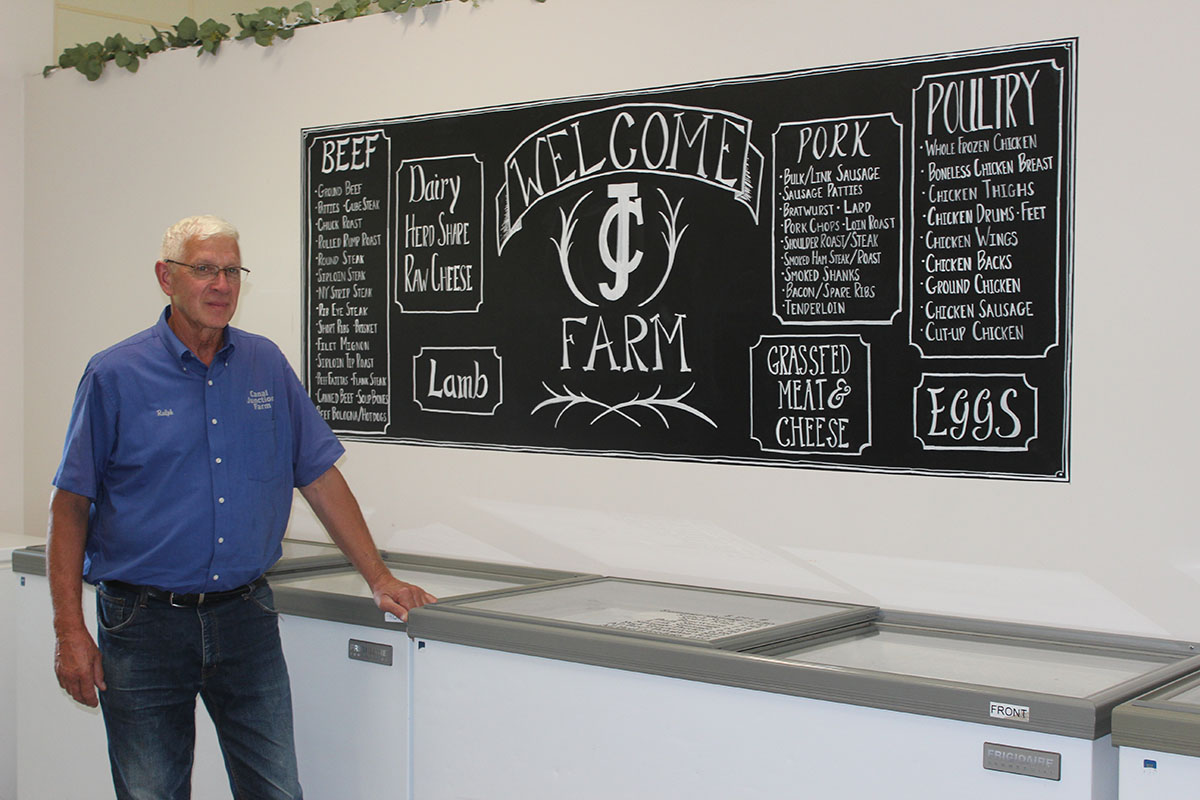 WELCOME
CJ
FARM
BEEF
·GROUND BEEF
·PATTIES ·CUBE STEAK
·CHUCK ROAST
·ROLLED RUMP ROAST
·ROUND STEAK
·SIRLOIN STEAK
·NY STRIP STEAK
·RIB EYE STEAK
·SHORT RIBS ·BRISKET
·FILET MIGNON
·SIRLOIN TIP ROAST
·BEEF FAJITAS ·FLANK STEAK
·CANNED BEEF ·SOUP BONES
·BEEF BOLOGNA/HOTDOGS
Dairy
HERD SHARE
RAW CHEESE
Lamb
PORK
·BULK/LINK SAUSAGE
·SAUSAGE PATTIES
·BRATWURST ·LARD
·PORK CHOPS ·LOIN ROAST
·SHOULDER ROAST/STEAK
·SMOKED HAM STEAK/ROAST
·SMOKED SHANKS
·BACON/SPARE RIBS
·TENDERLOIN
GRASSFED
MEAT &
CHEESE
POULTRY
·WHOLE FROZEN CHICKEN
·BONELESS CHICKEN BREAST
·CHICKEN THIGHS
·CHICKEN DRUMS ·FEET
·CHICKEN WINGS
·CHICKEN BACKS
·GROUND CHICKEN
·CHICKEN SAUSAGE
·CUT-UP CHICKEN
EGGS
Ralph
Canal
Junction
Farm
FRONT
FRIGIDAIRE